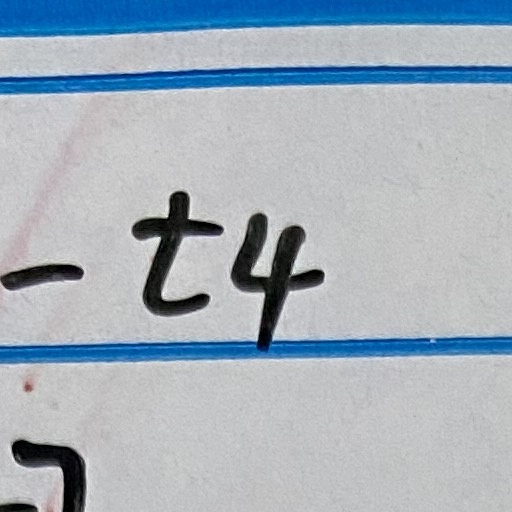 - t4